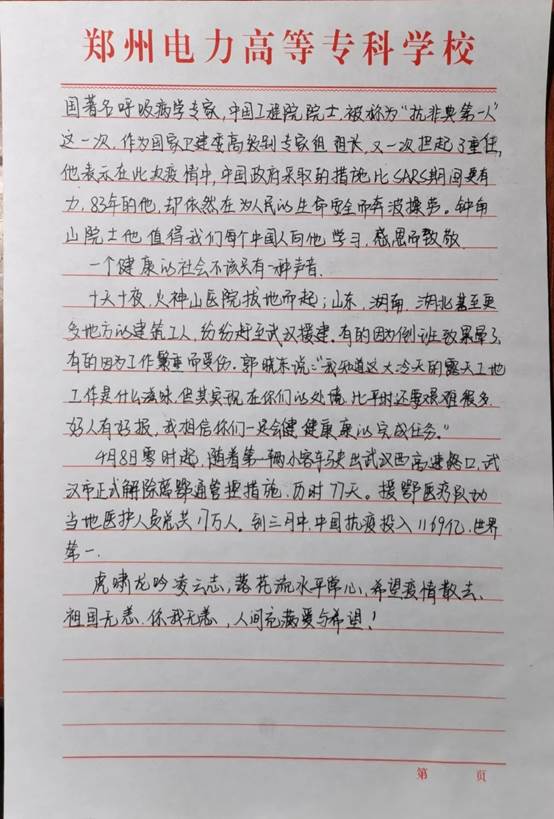 郑州电力高等专科学校
国著名呼吸病学专家，中国工程院院士，被称为“抗非典第一人”
这一次，作为国家卫建委高级别专家组组长，又一次担起了重任，
他表示在此次疫情中，中国政府采取的措施比SARS期间更有
力，83年的他，却依然在为人民的生命安全而奔波操劳。钟南
山院士他值得我们每个中国人向他学习，感恩而致敬
一个健康的社会不该只有一种声音。
十天十夜，火神山医院拔地而起；山东，湖南，湖北甚至更
多地方的建筑工人，纷纷赶至武汉援建。有的因为倒班效果晕了，
有的因为工作繁重而受伤。郭晓东说：“我知道这大冷天的露天工地
工作是什么滋味，但其实现在你们的处境比平时还要艰难很多，
好人有好报，我相信你们一定会健健康康的完成任务。”
4月8日零时起，随着第一辆小客车驶出武汉西高速路口，武
汉市正式解除离鄂通管控措施，历时77天。援鄂医疗队加
当地医护人员总共17万人。到三月中，中国抗疫投入1169亿，世界
第一．
虎啸龙吟凌云志，落花流水平常心，希望疫情散去、
祖国无恙．你我无恙，人间充满爱与希望！
第 页